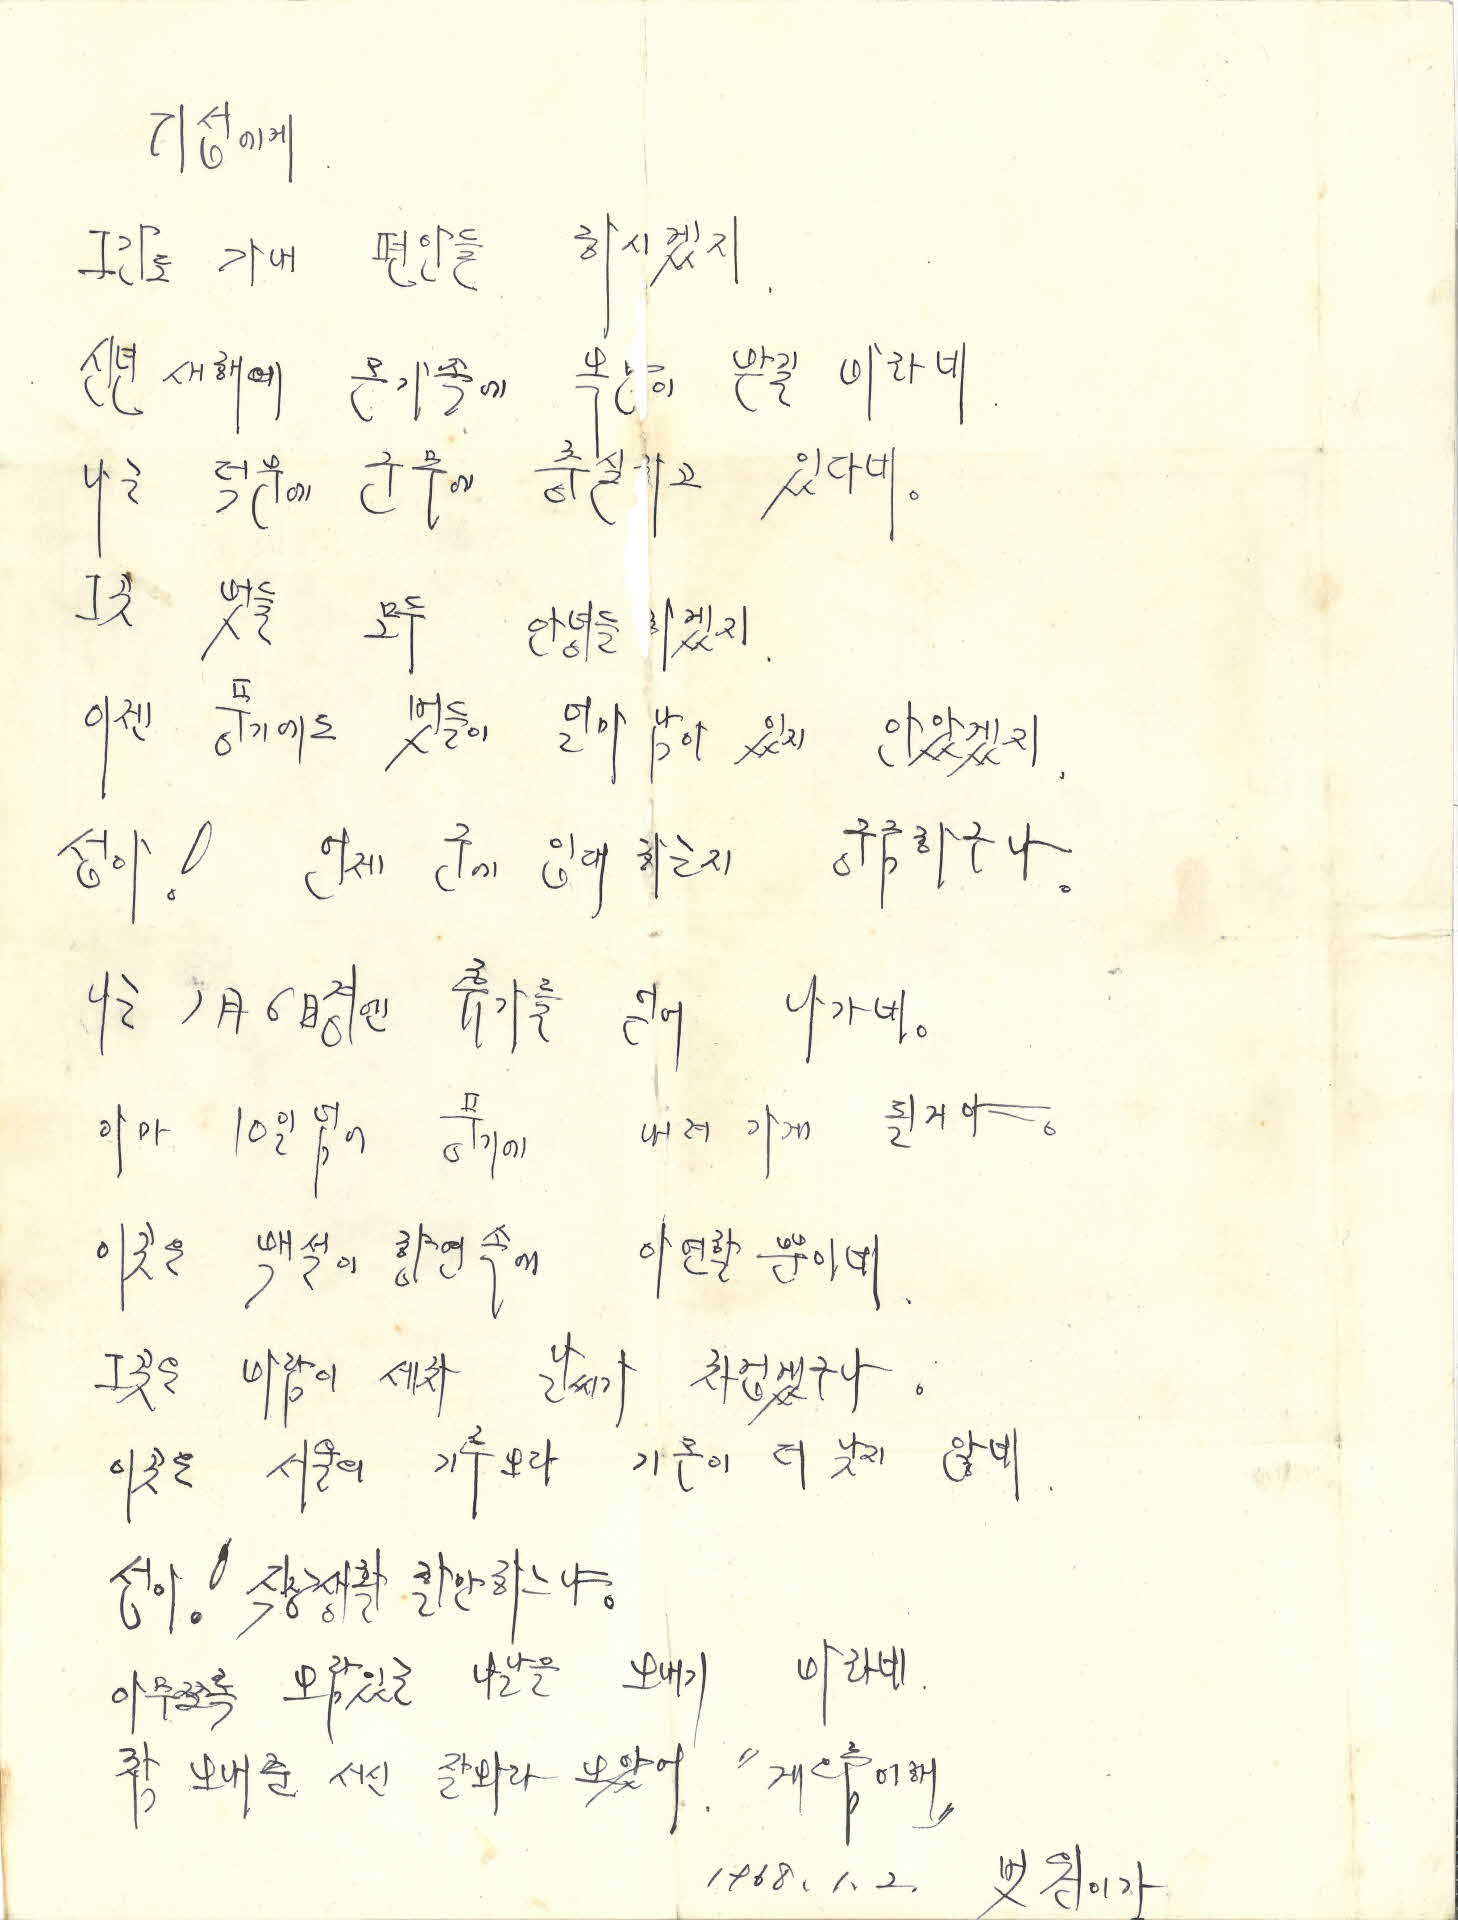 기섭에게.
그간도 가내 편안들 하시겠지.
신년 새해에 온가족에 복 많이 받길 바라네.
나는 덕분에 군무에 충실하고 있다네。
그곳 벗들 모두 안녕들 하겠지.
이젠 풍기에도 벗들이 얼마 남아 있지 안았겠지.
섭아! 언제 군에 입대 하는지 궁금하구나。
나는 1月 6日경엔 휴가를 얻어 나가네。
아마 10일 넘어 풍기에 내려 가게 될거야。
이곳은 백설이 속에 아연할 뿐이네.
그곳은 바람이 세차 날씨가 차겁겠구나.
이곳은 서울의 기후보다 기온이 더 낮지 않네.
섭아! 직장생활 할만하느냐。
아무쪼록 보람있는 나날을 보내기 바라네.
참 보내준 서신 잘 보았어. "게으름 이해"
1968. 1. 2. 벗 원이가